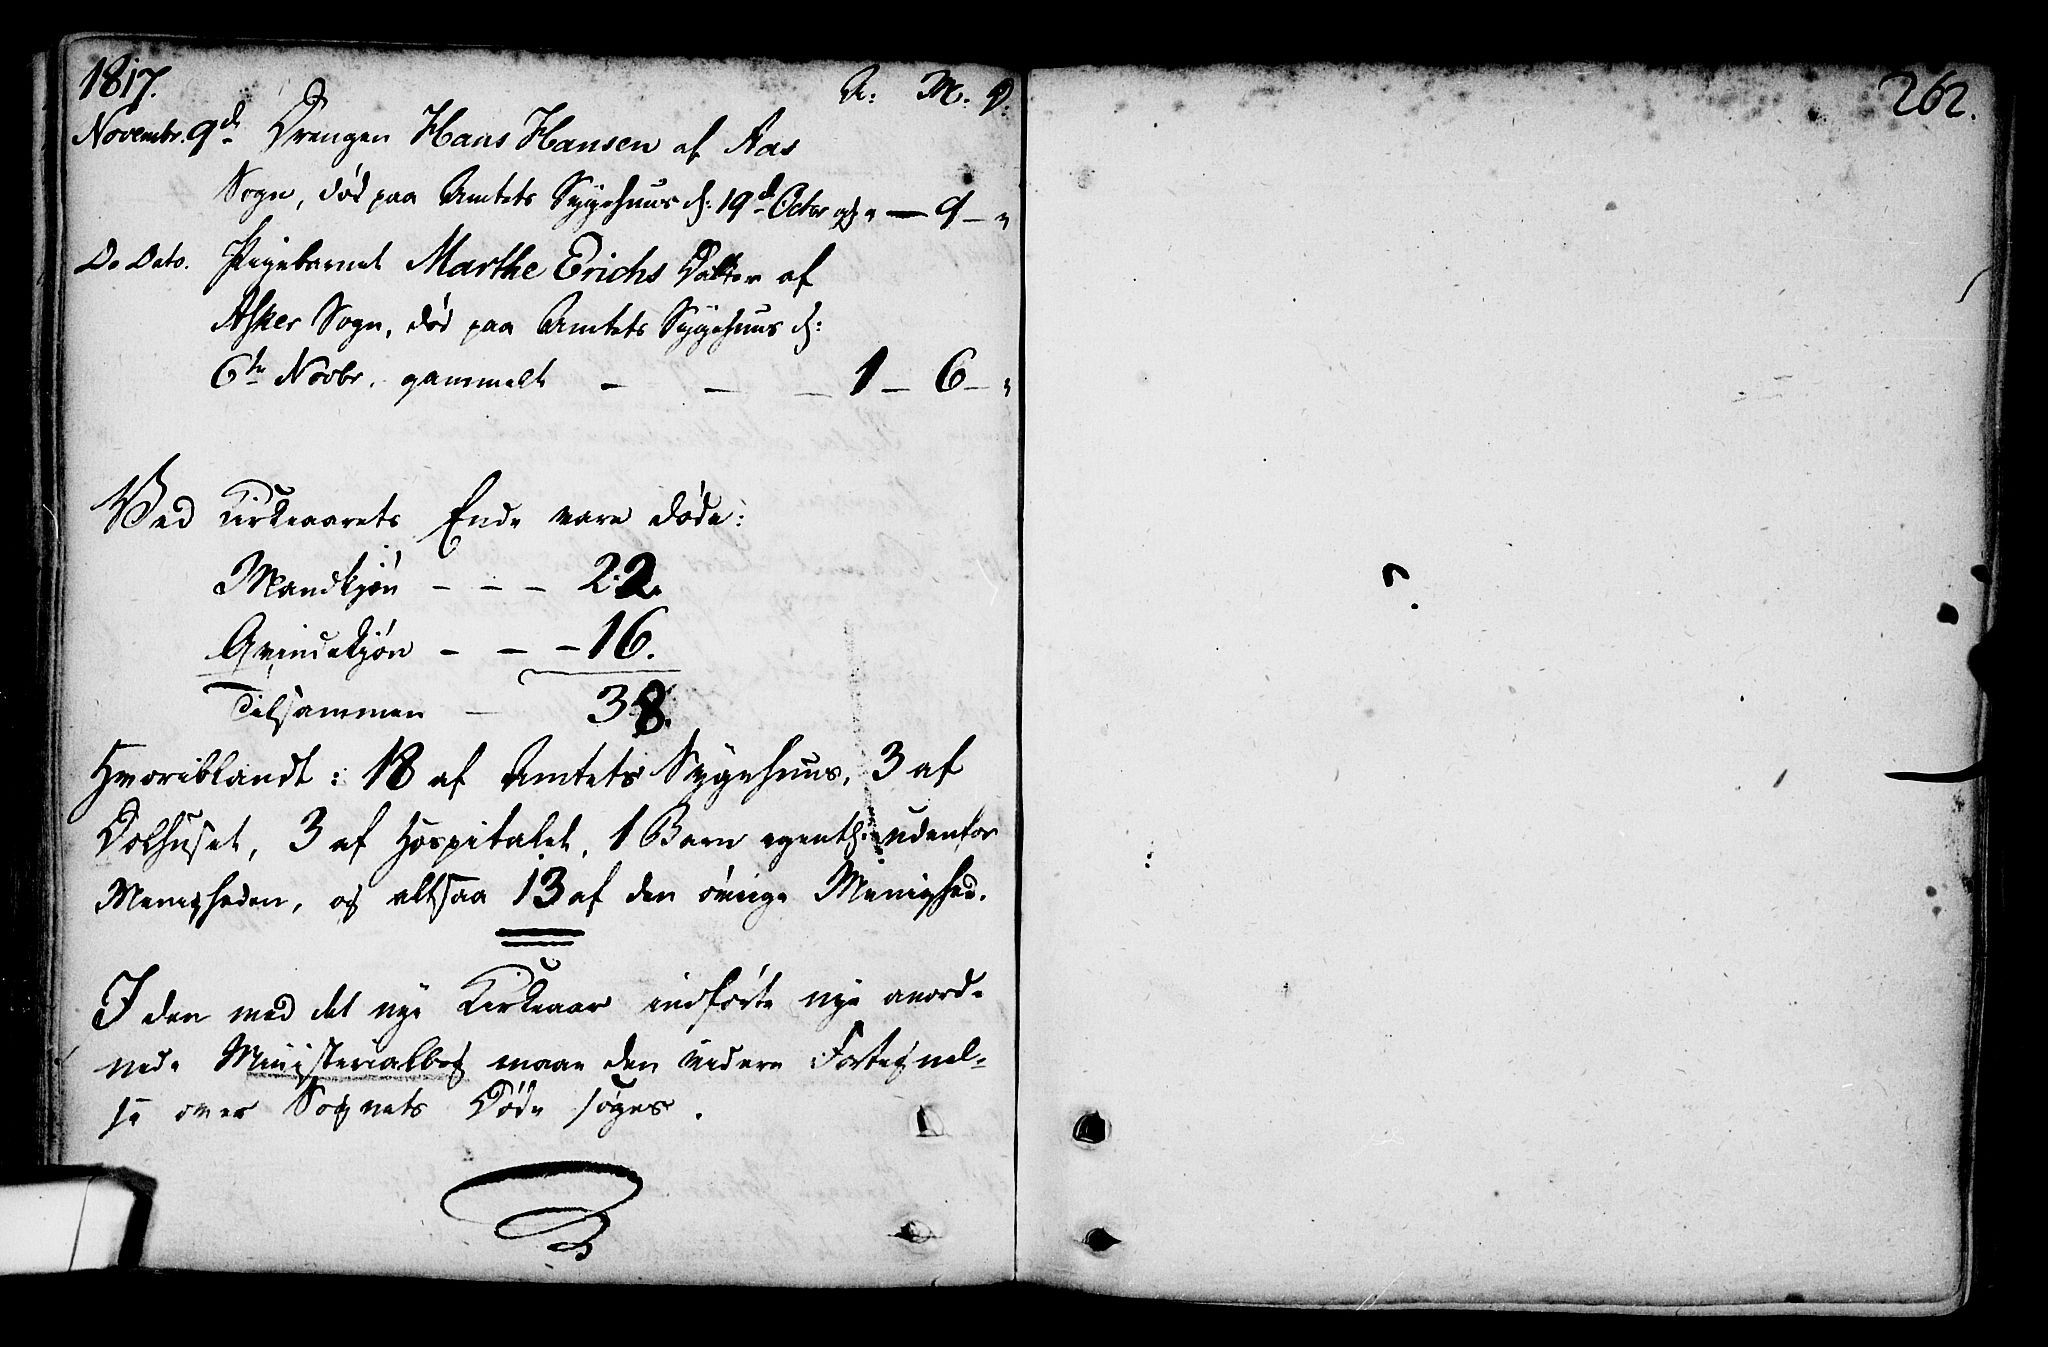 1817. A: M. D:
Novembr. 9d. Drengen Hans Hansen af Aas
Sogn, død paa Amtets Sygehuus d: 19d Octbr " — 9 — "
Do Dato. Pigebarnet Marthe Erichs Datter af
Asker Sogn, død paa Amtets Sygehuus d:
6te Novbr. gammelt — — — 1 — 6 — "
Ved Kirkeaarets Ende vare døde:
Mandkjøn — — — 22.
Qvindekjøn — — — 16.
Tilsammen — 38.
Hvoriblandt: 18 af Amtets Sygehuus, 3 af
Dolhuset, 3 af Hospitalet, 1 Barn egentl. udenfor
Menigheden, og altsaa 13 af den øvrige Menighed.
I den med det nye Kirkeaar indførte nye anord-
nede Ministerialbog maae den videre Fortegnel-
se over Sognets Døde søges.
262.